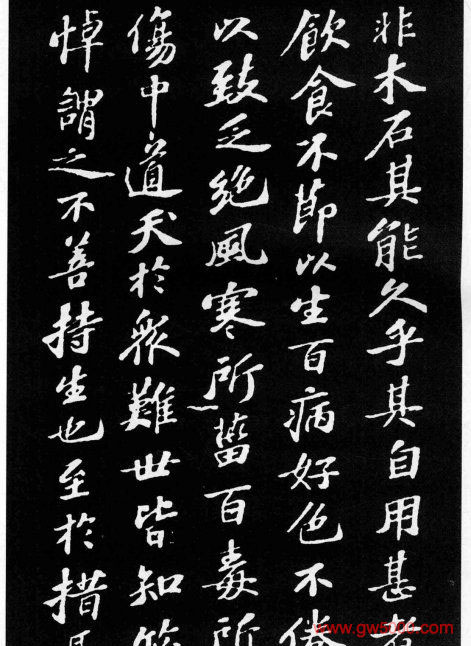 非木石其能久乎其自用甚者
飲食不節以生百病好色不倦
以致乏絕風寒所菑百毒所
傷中道夭於眾難世皆知笑
悼謂之不善持生也至於措